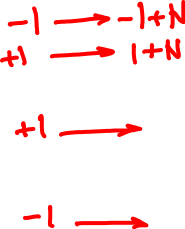 -1 → -1+N
+1 → 1+N
+1 →
-1 →